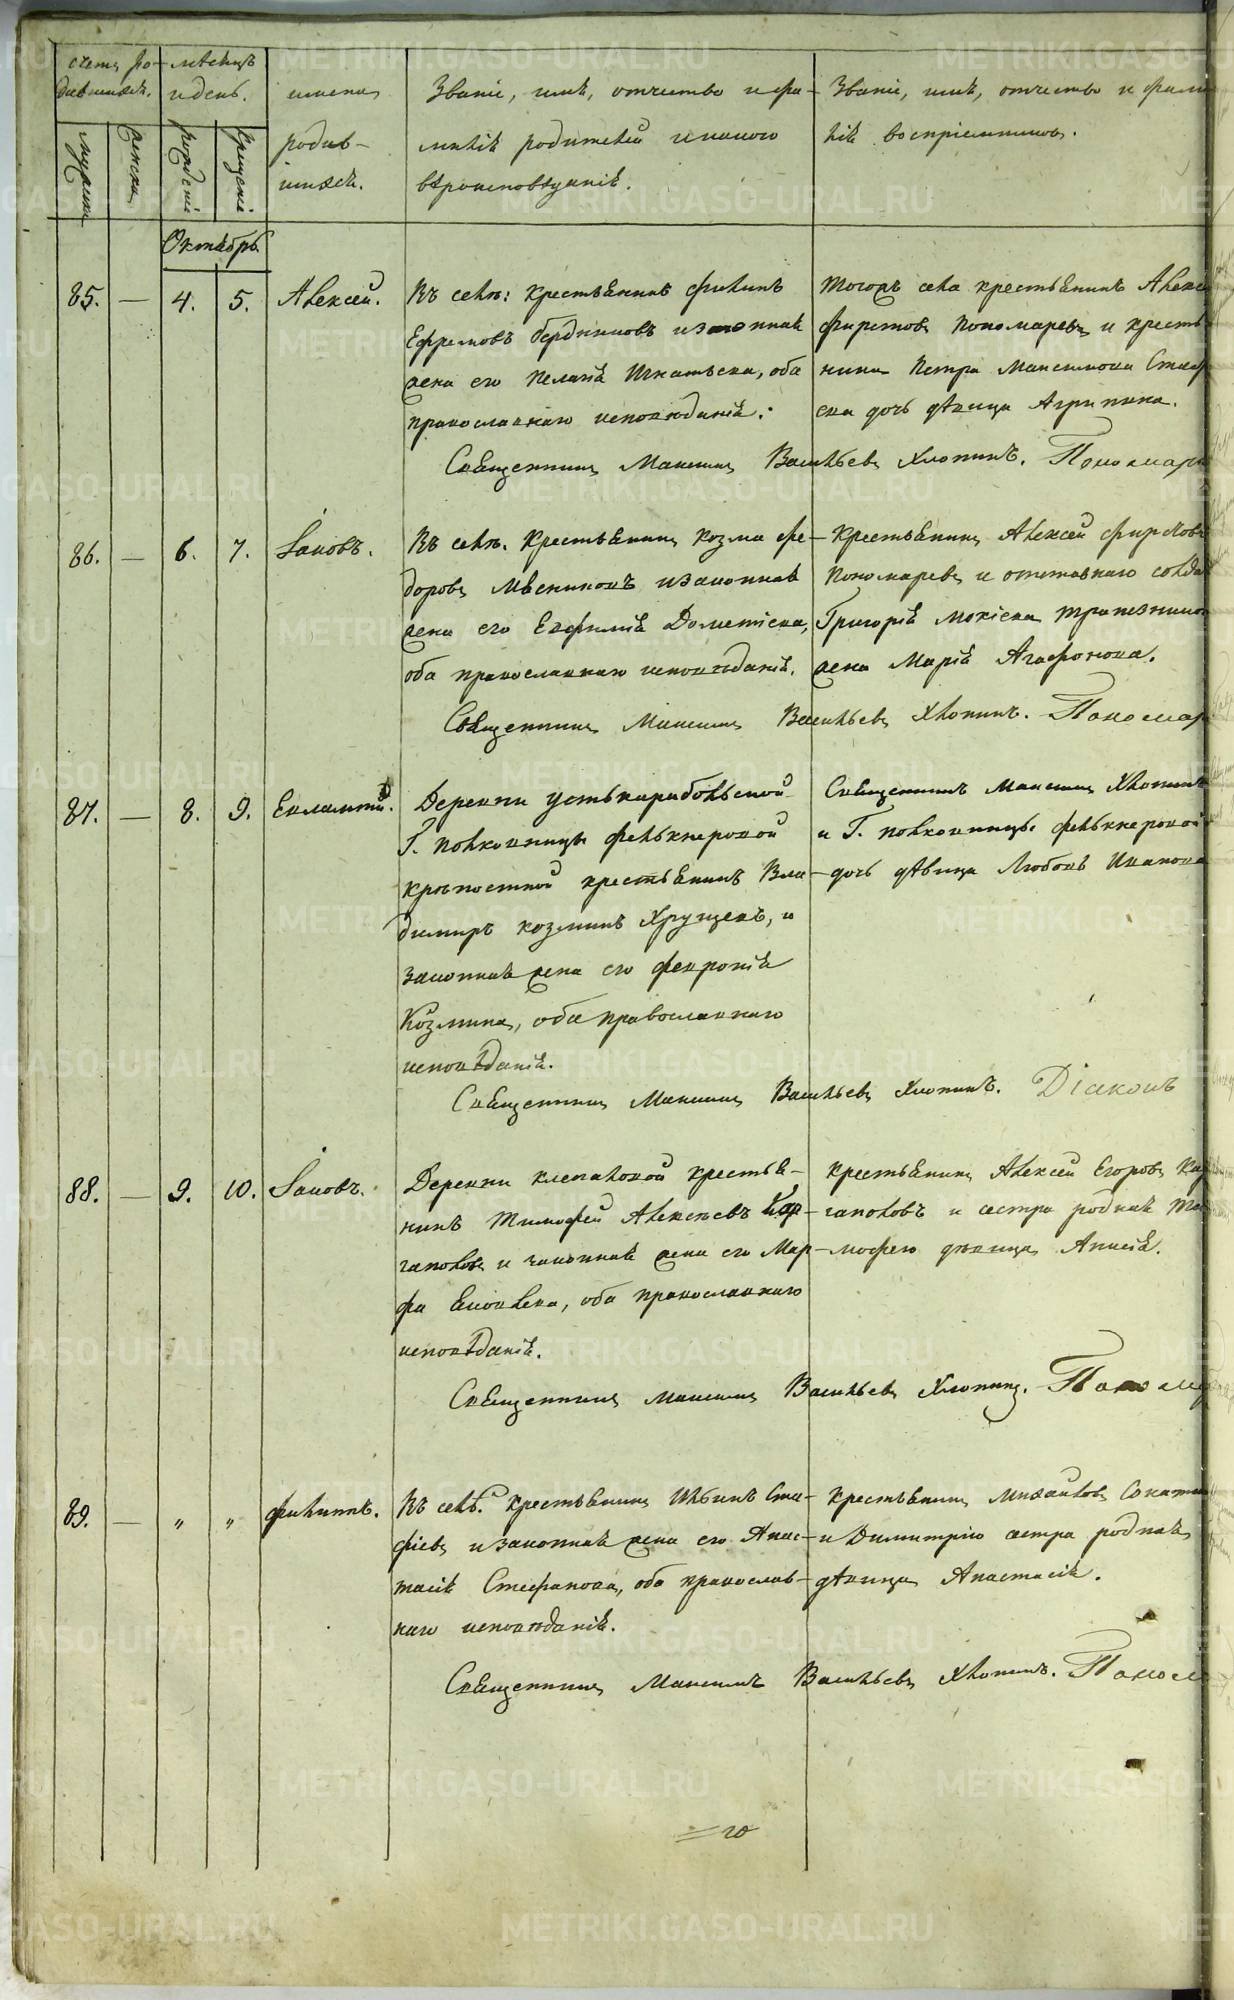 счетъ ро-
дившихся.
мѣсяцъ
и день.
имена
родив-
шихся.
Званіе, имя, отчество и фа-
милія родителей и какого
вѣроисповѣданія.
Званіе, имя, отчество и фами
лія воспріемниковъ.
мужеска
женска
рожденія
крещенія
Октябрь.
85. — 4. 5. Алексей.
Въ селѣ: крестьянинъ Филипъ
Ефремовъ Бердниковъ и законная
жена его Пелагія Игнатьева, оба
православнаго исповѣданія.
Тогожъ села крестьянинъ Алексей
Фирстовъ Пономаревъ и крестья
нина Петра Максимова
дочь дѣвица Агрипина.
Священникъ Максимъ Васильевъ Хлопинъ. Пономарь
86. — 6. 7. Іаковъ.
Въ селѣ. Крестьянинъ Козма Фе-
доровъ Мясниковъ и законная
жена его Евфимія Дометіева,
оба православнаго исповѣданія.
Крестьянинъ Алексей Фирстовъ
Пономаревъ и отставнаго солда
Григорія Мокіева Трапезников
жена Марія Агафонова.
Священникъ Максимъ Васильевъ Хлопинъ. Пономар
87. — 8. 9. Евлампій.
Деревни Устькарабольской
Г. полковницы Фелькнеровой
крѣпостной крестьянинъ Вла-
димиръ Козминъ Хрущевъ, и
законная жена его Феврония
Козмина, оба православнаго
исповѣданія.
Священникъ Максимъ Хлопинъ
и Г. полковницы Фелькнеровой
дочь дѣвица Любовь Иванова
Священникъ Максимъ Васильевъ Хлопинъ. Діаконъ
88. — 9. 10. Іаковъ.
Деревни Клепаловой крестья-
нинъ Тимофей Алексѣевъ Кар-
гаполовъ и законная жена его Мар-
фа Іаковлева, оба православнаго
исповѣданія.
Крестьянинъ Алексей Егоровъ Кар
гаполовъ и сестра родная Ти
мофею дѣвица Анисія.
Священникъ Максимъ Васильевъ Хлопинъ. Поном
89. — „ „ Филиппъ.
Въ селѣ. Крестьянинъ Ильинъ Ста-
фіевъ и законная жена его Анас-
тасія Стефанова, оба православ-
наго исповѣданія.
Крестьянинъ Михайловъ
и Димитрію сестра родная
дѣвица Анастасія.
Священникъ Максимъ Васильевъ Хлопинъ. Поном
METRIKI.GASO-URAL.RU